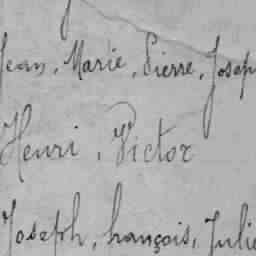 Jean, Marie, Pierre, Josep
Henri, Victor
Joseph, françois, Julie